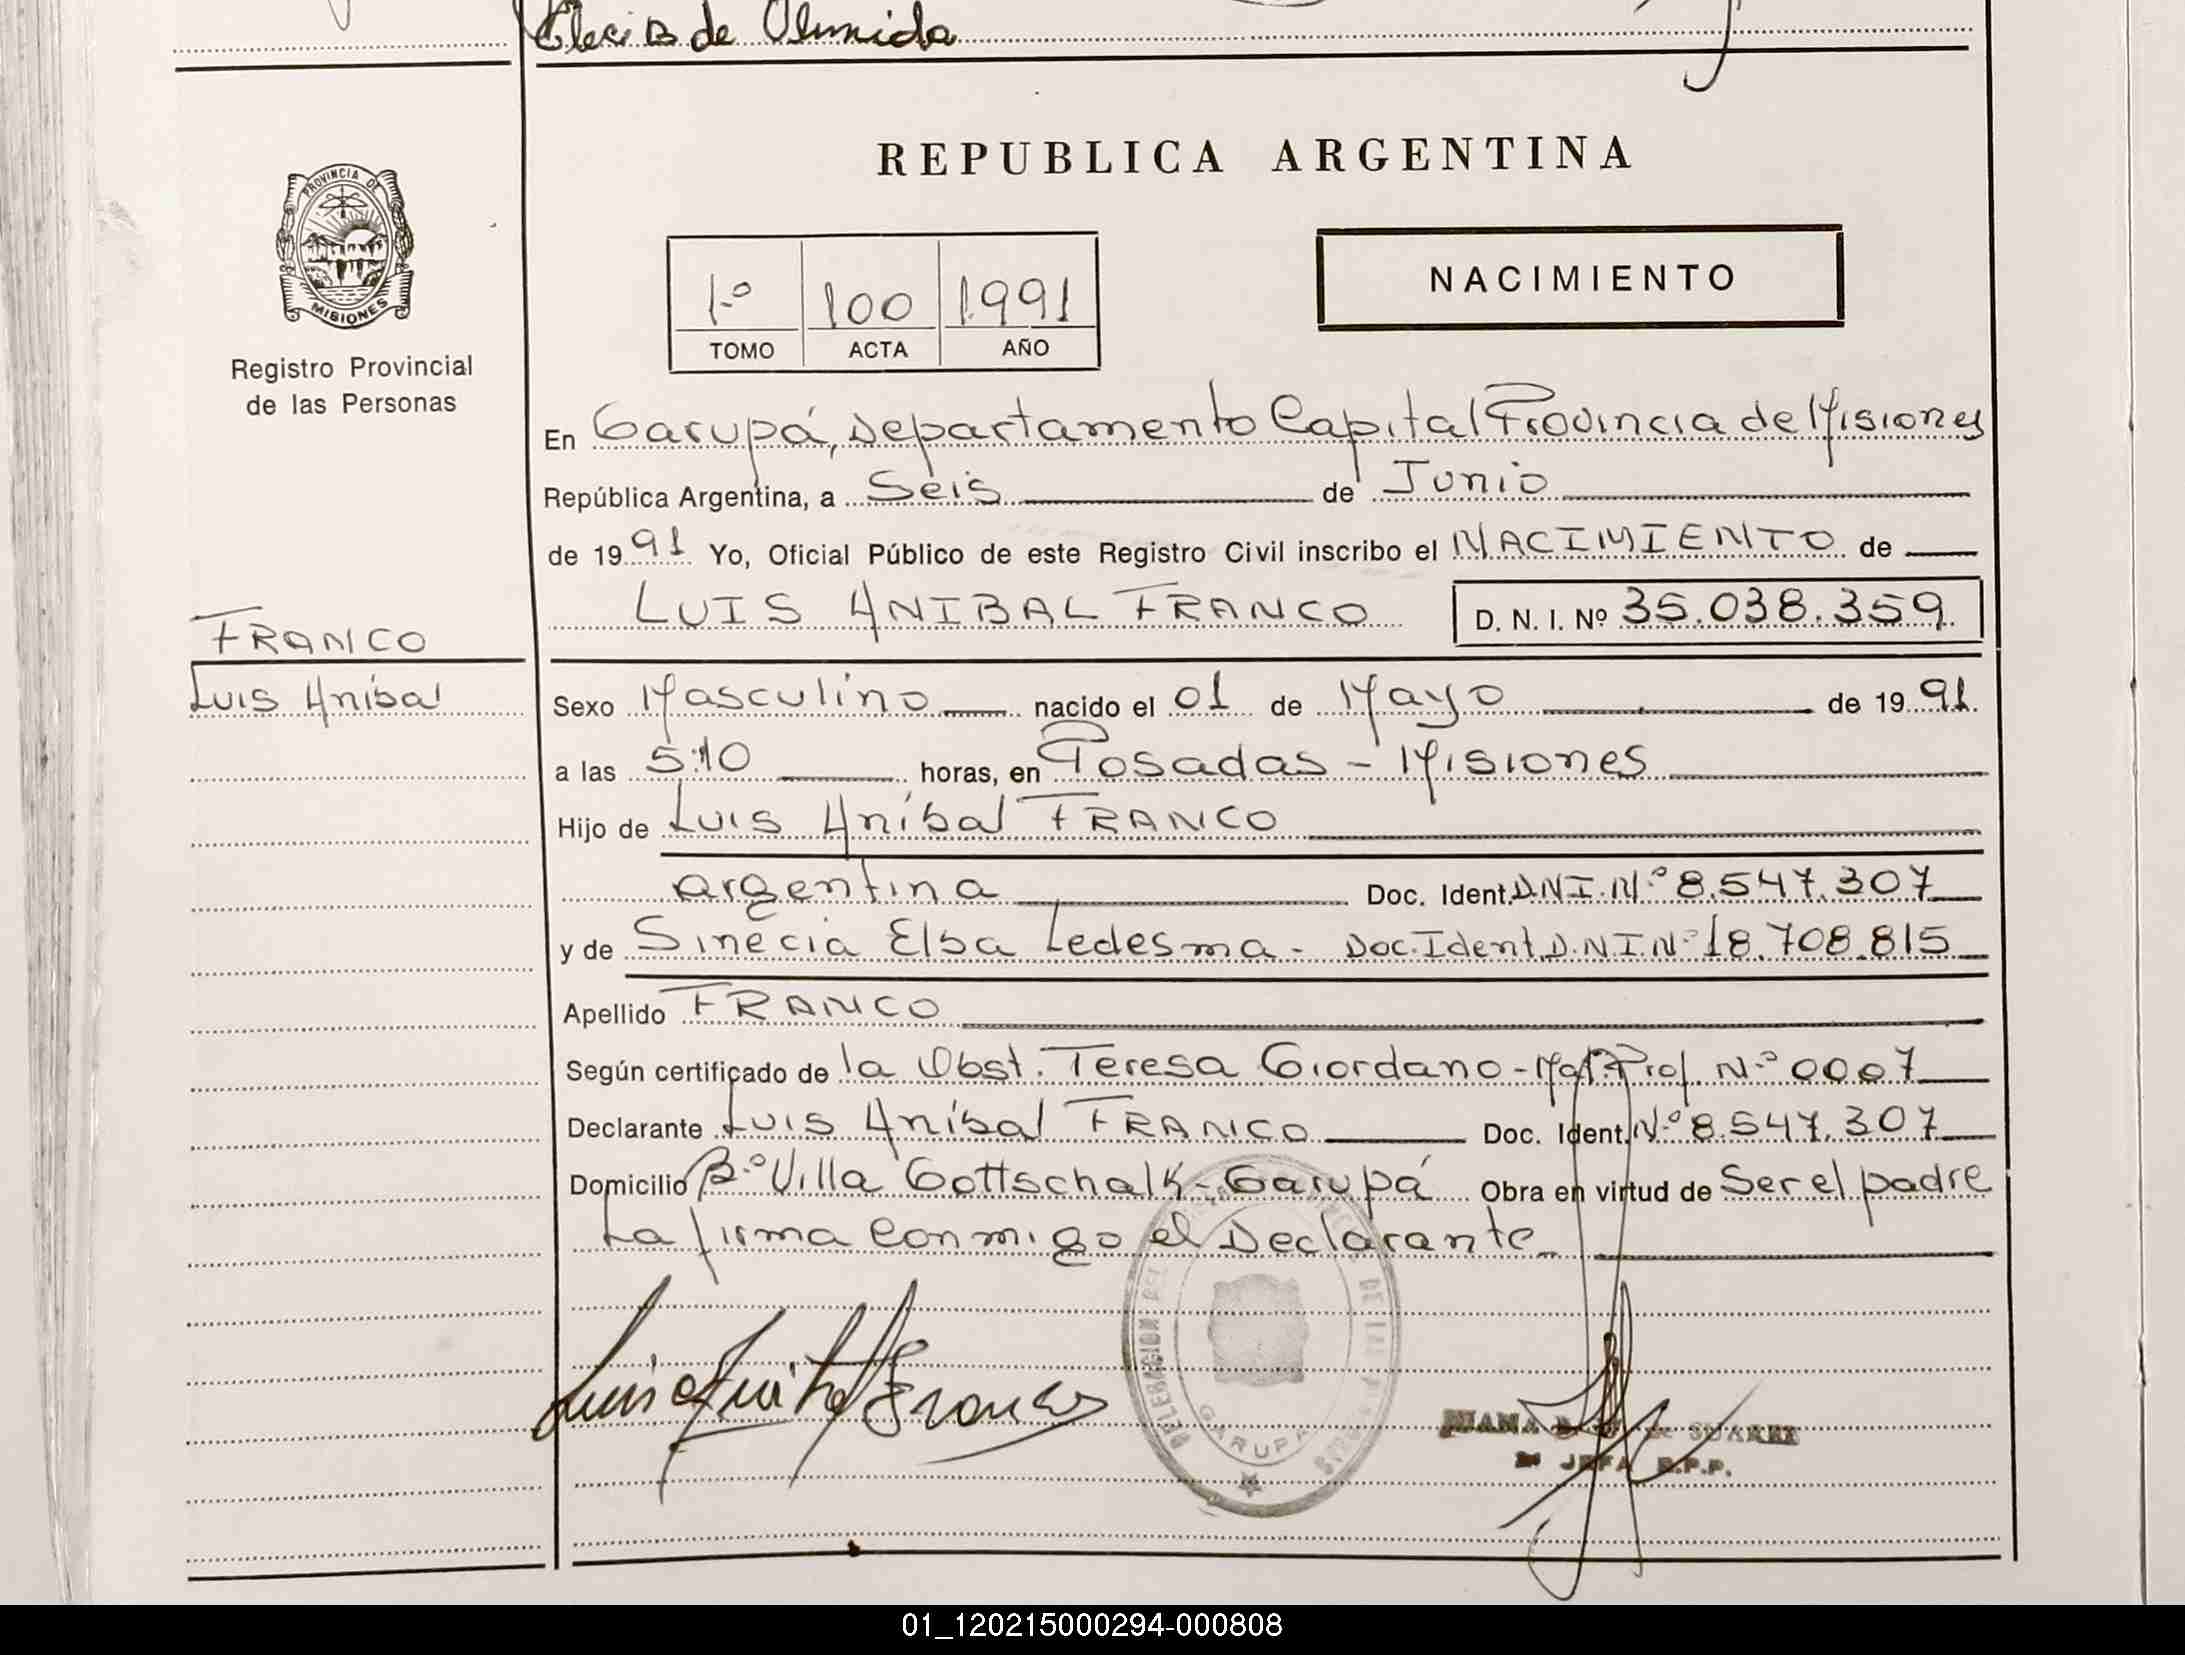 de Olmida
REPUBLICA ARGENTINA
PROVINCIA DE
MISIONES
Registro Provincial
de las Personas
NACIMIENTO
1º 100 1991
TOMO ACTA AÑO
En Garupá, Departamento Capital Provincia de Misiones
República Argentina, a Seis de Junio
de 1991 Yo, Oficial Público de este Registro Civil inscribo el NACIMIENTO de
LUIS ANIBAL FRANCO D. N. I. Nº 35.038.359
FRANCO
Luis Aníbal
Sexo Masculino nacido el 01 de Mayo de 1991.
a las 5:10 horas, en Posadas - Misiones
Hijo de Luis Aníbal FRANCO
argentina Doc. Ident. D.N.I. Nº 8.547.307
y de Sinecia Elba Ledesma - Doc. Ident. D.N.I. Nº 18.708.815
Apellido FRANCO
Según certificado de la Obst. Teresa Giordano - Mat. Prof. Nº 0007
Declarante Luis Aníbal FRANCO Doc. Ident. Nº 8.547.307
Domicilio Bº Villa Gottschalk - Garupá Obra en virtud de Ser el padre
La firma conmigo el Declarante
DELEGACION DEL REGISTRO PROVINCIAL DE LAS PERSONAS
GARUPA
JUANA SUAREZ
JEFA R.P.P.
01_120215000294-000808